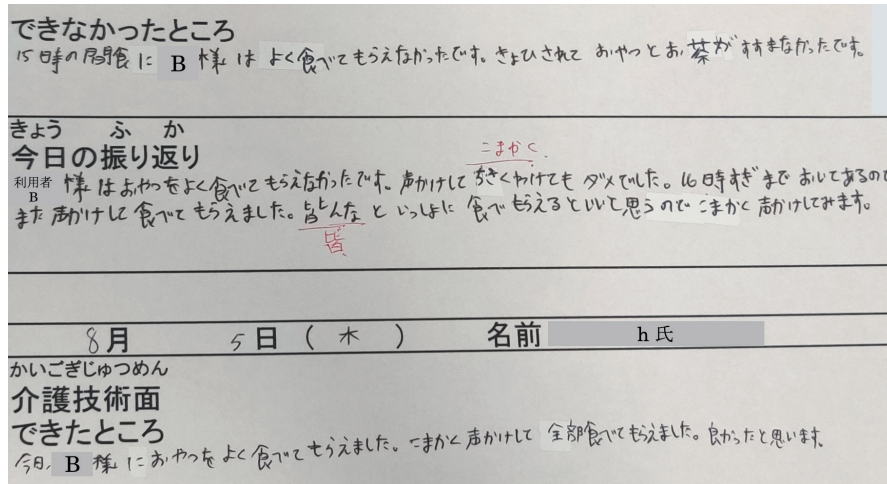 できなかったところ
15時の間食に B 様は よく食べてもらえなかったです。きょひされて おやつとお茶がすすまなかったです。
きょう ふ か
今日の振り返り
こまかく
利用者
B
様はおやつをよく食べてもらえなかったです。声かけして ちさくわけても ダメでした。16時すぎまで おいてあるので
また声かけして食べて もらえました。皆んな といっしょに 食べもらえるといいと思うので こまかく 声かけしてみます。
皆
8月 5日 ( 木 ) 名前 h 氏
かいごぎじゅつめん
介護技術面
できたところ
今日、B 様に おやつを よく食べてもらえました。こまかく声かけして 全部食べてもらえました。良かったと思います。